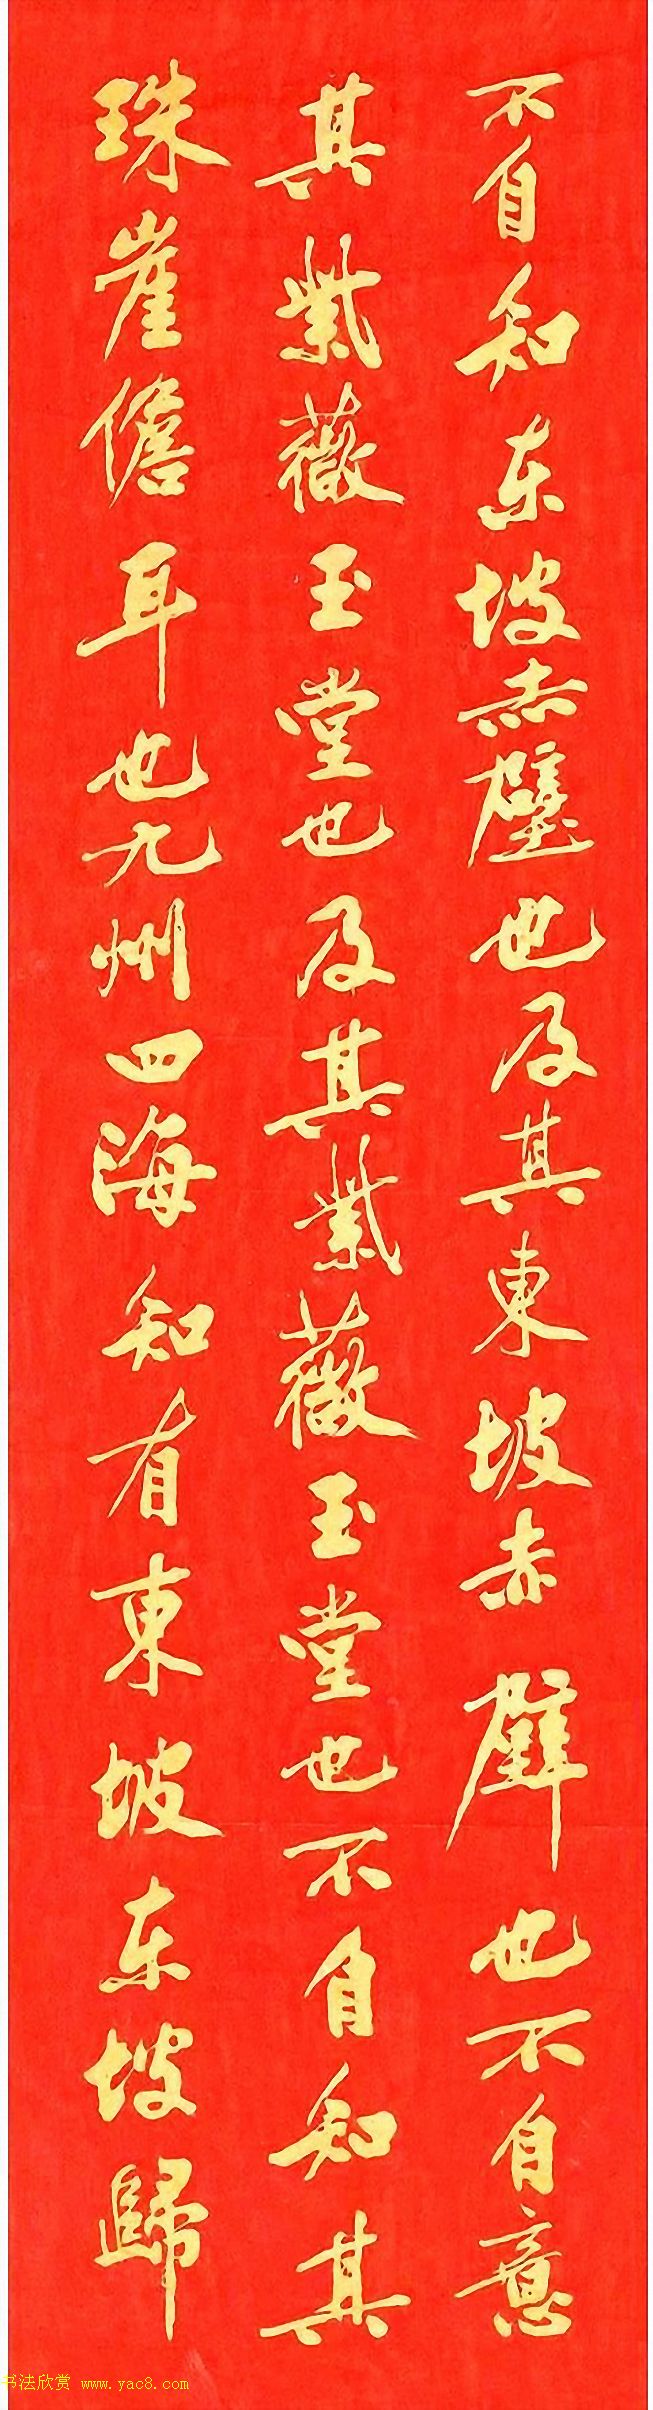 不自知东坡赤壁也及其東坡赤壁也不自意
其紫薇玉堂也及其紫薇玉堂也不自知其
珠崖儋耳也九州四海知有東坡东坡歸
书法欣赏 www.yac8.com